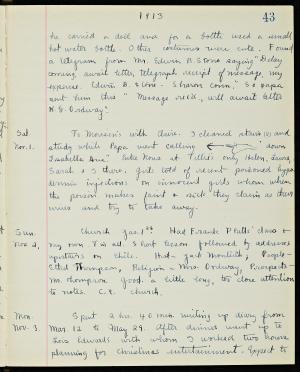 1913
43
he carried a doll and for a bottle used a small
hot water bottle. Other costumes were cute. Found
a telegram from Mr. Edwin B. Stone saying "Delay
coming, await letter, telegraph receipt of message, my
expense. Edwin B. Stone - Sharon Conn." So Papa
sent him this " Message rec'd., will await letter
Ordway."
Sat.
Nov. 1.
To Monson's with Claire. I cleaned stairs and
study while Papa went calling down
Isabella Ave." Luke Kona at Pille's only Helen, Laura,
Sarah & I there. Girls told of recent poisoned hypo-
dermic injections on innocent girls whom when
the person makes faint & sick they claim as their
nurses and try to take away.
Sun.
Nov. 2.
Church Jas. 1st Had Frank Phelps' class &
my own, 8 in all. S hort lesson followed by addresses
upstairs on Chile. Had - Jack Monteith, People -
Ethel Thompson, Religion - Mrs. Ordway, Prospects -
Mr. Thompson. Good a little long, to close attention
to notes. C.E. church.
Mon.
Nov. 3.
Spent 2 hrs. 40 min. writing up diary from
Mar. 12 to May 29. After dinner went up to
Lois Edwards with whom I worked two hours
planning for Christmas entertainment. Expect to